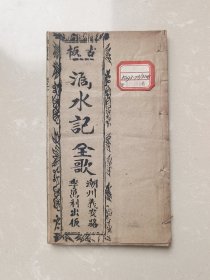 古板
滴水記全歌
潮州義安路
李萬利出板